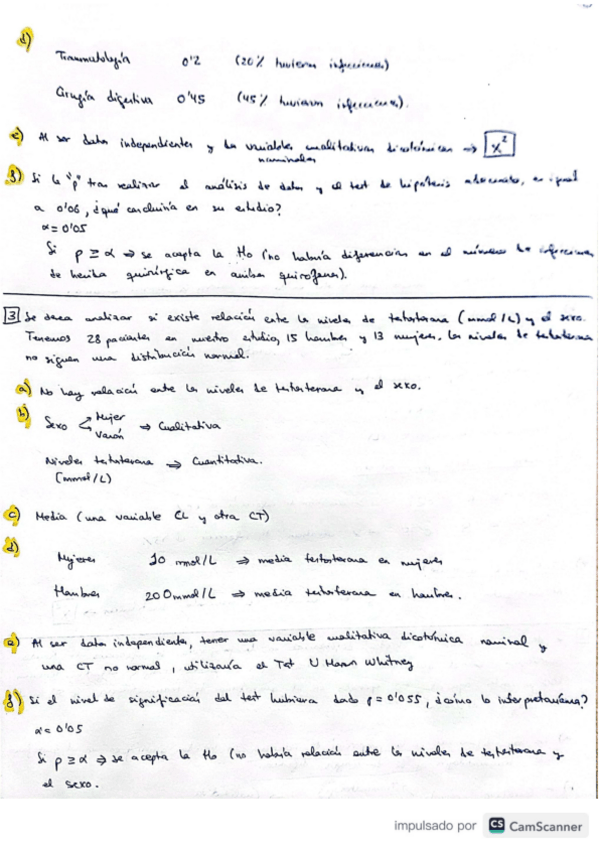 d)
Traumatología 0'2 (20% tuvieron infecciones)
Cirugía digestiva 0'45 (45% tuvieron infecciones).
e) Al ser datos independientes y las variables cualitativas dicotómicas ⇒ X²
nominales
f) Si la "p" tras realizar el análisis de datos y el test de hipótesis adecuado, es igual
a 0'06, ¿qué concluiría en su estudio?
α = 0'05
Si p ≥ α ⇒ se acepta la H₀ (no habría diferencias en el número de infecciones
de herida quirúrgica en ambos quirófanos).
3 Se desea analizar si existe relación entre los niveles de testosterona (mmol/L) y el sexo.
Tenemos 28 pacientes en nuestro estudio, 15 hombres y 13 mujeres. Los niveles de testosterona
no siguen una distribución normal.
a) No hay relación entre los niveles de testosterona y el sexo.
b)
Sexo Mujer
Varón ⇒ Cualitativa
Niveles testosterona ⇒ Cuantitativa.
(mmol/L)
c) Media (una variable CL y otra CT)
d)
Mujeres 10 mmol/L ⇒ media testosterona en mujeres
Hombres 200 mmol/L ⇒ media testosterona en hombres.
e) Al ser datos independientes, tener una variable cualitativa dicotómica nominal y
una CT no normal, utilizaría el Test U Mann Whitney
f) Si el nivel de significación del test hubiera dado p = 0'055, ¿cómo lo interpretaríamos?
α = 0'05
Si p ≥ α ⇒ se acepta la H₀ (no habría relación entre los niveles de testosterona y
el sexo.
impulsado por CS CamScanner